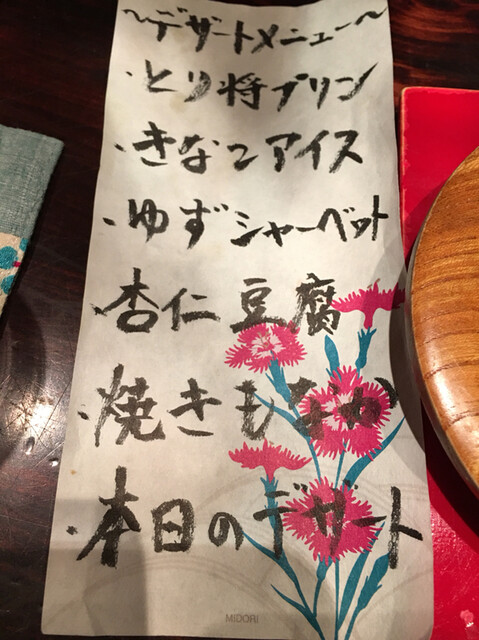 ～デザートメニュー～
・とり将プリン
・きなこアイス
・ゆずシャーベット
杏仁豆腐
・焼きもなか
・本日のデザート
MIDORI